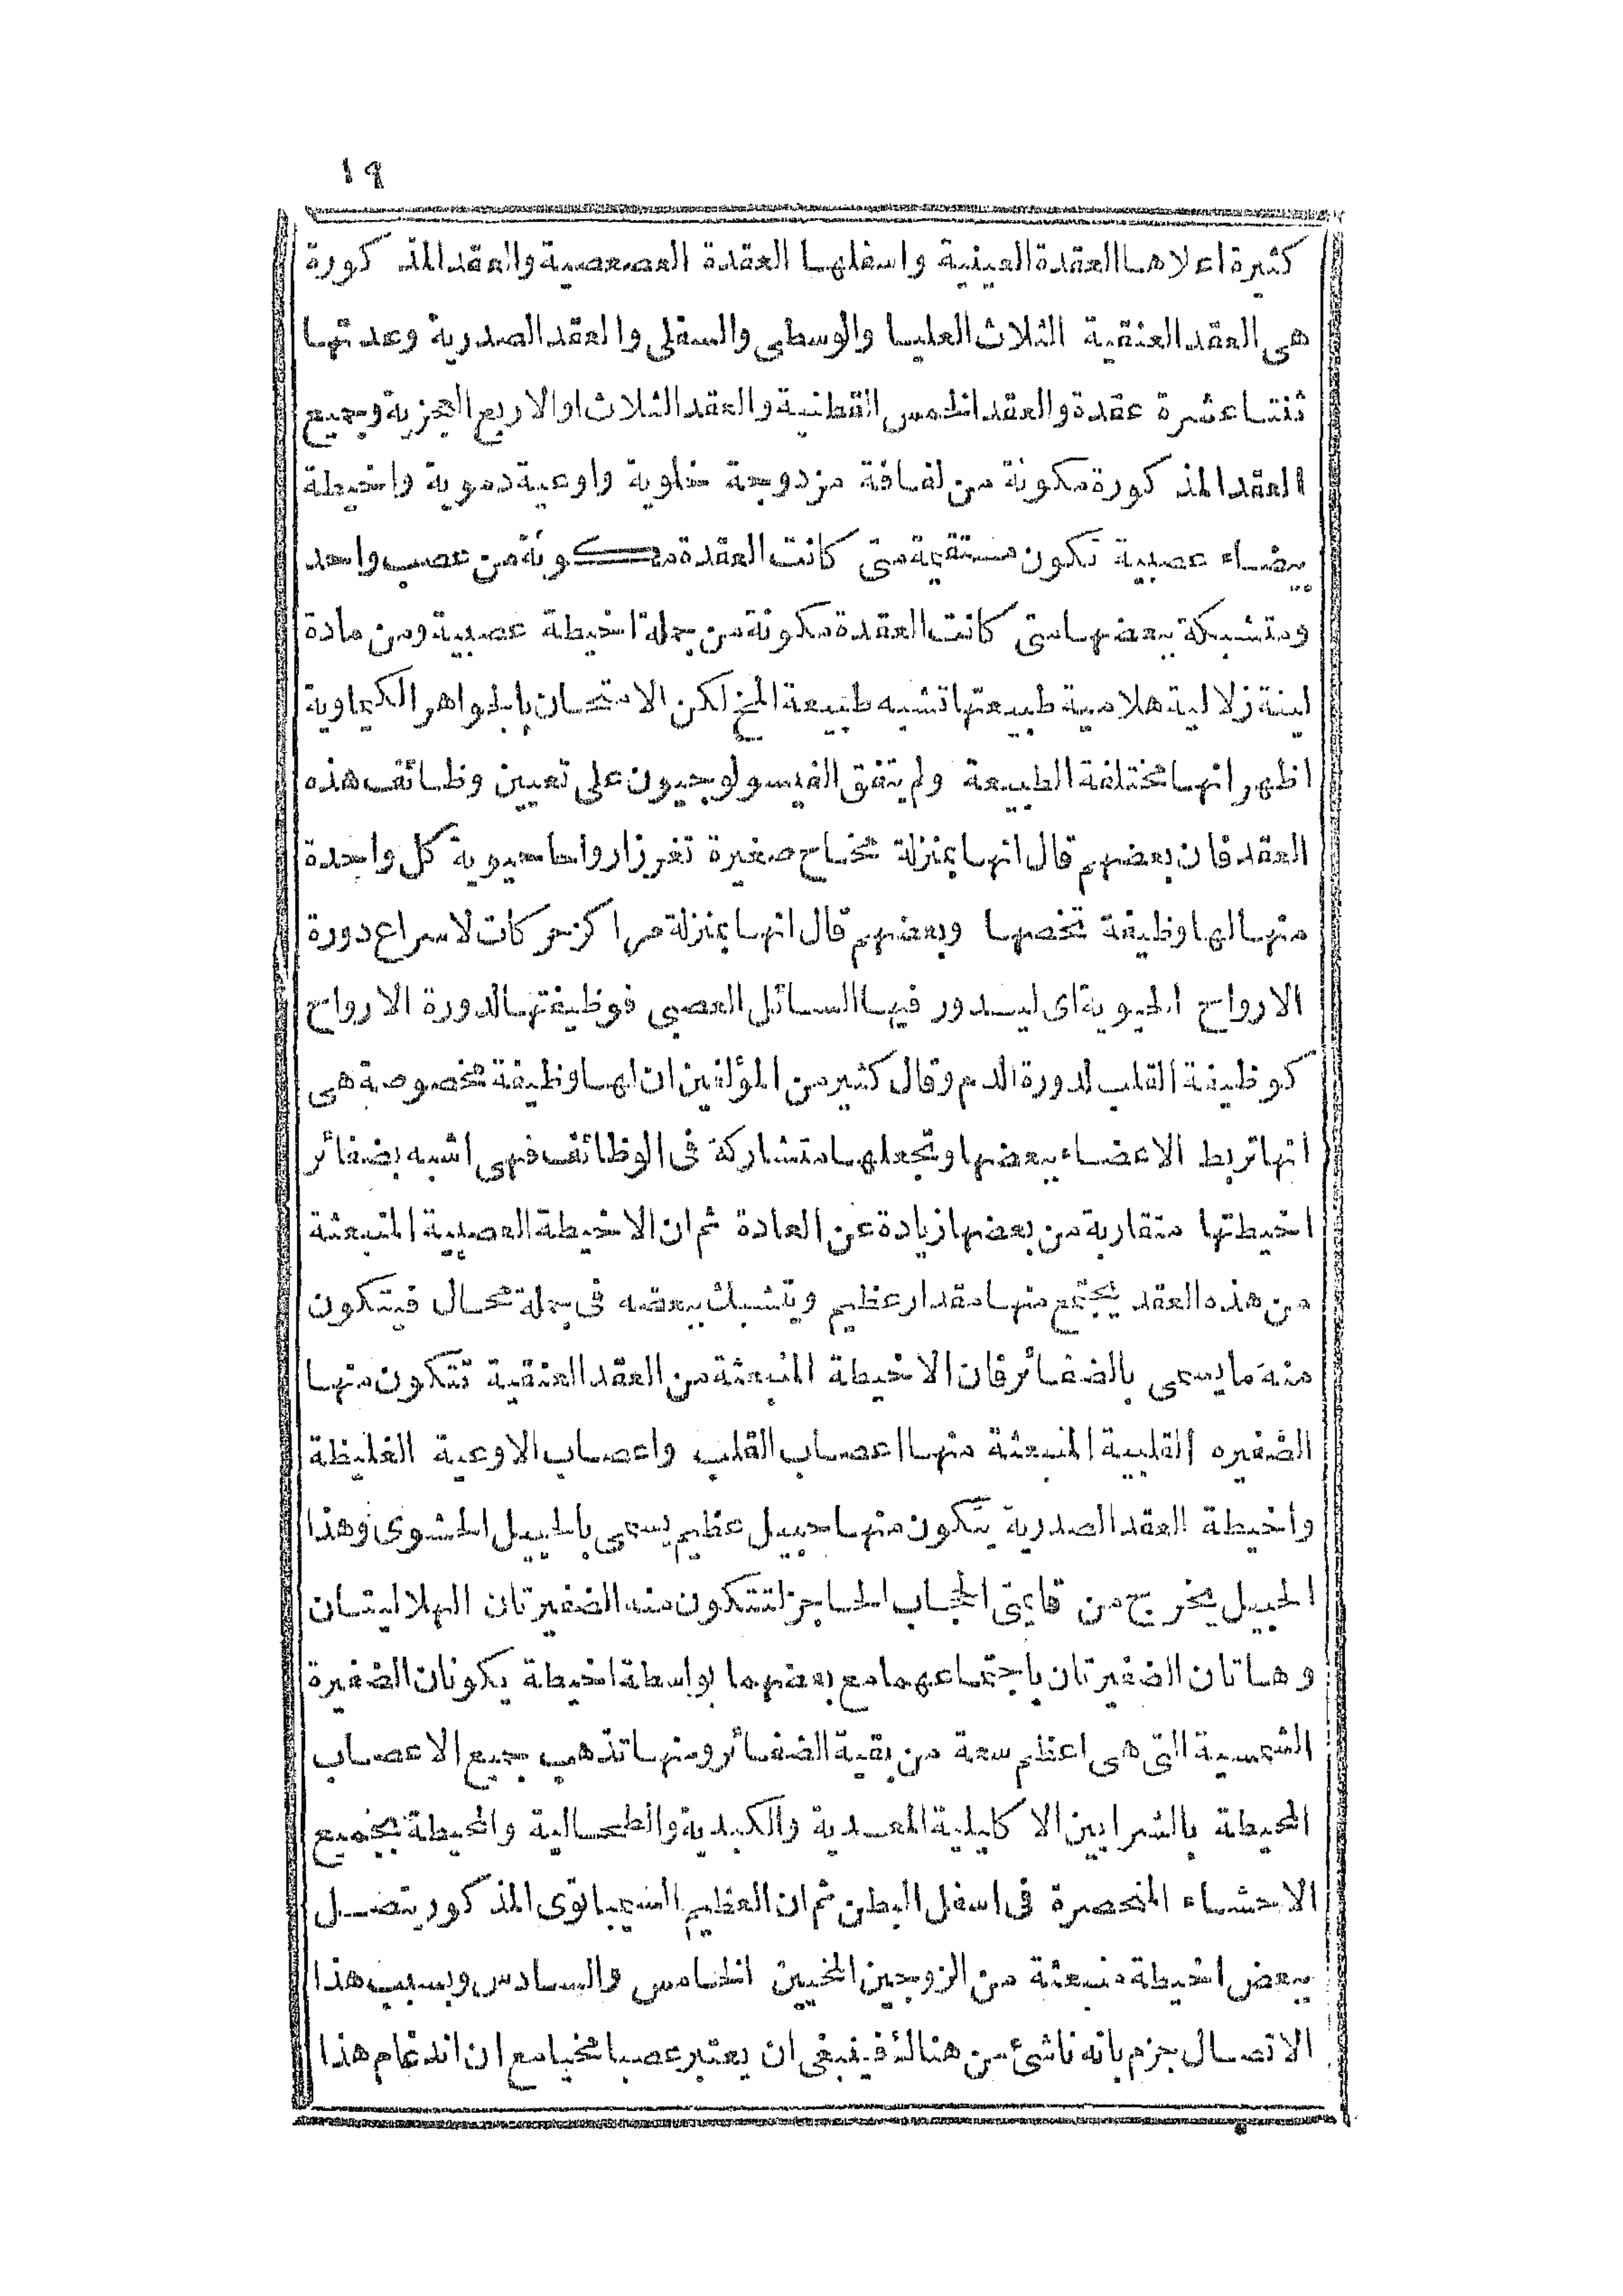 ١٩
كثيرة اعلاها العقدة العينية واسفلها العقدة العصعصية والعقد المذكورة
هى العقد العنقية الثلاث العليا والوسطى والسفلى والعقد الصدرية وعدتها
ثنتا عشرة عقدة والعقد الخمس القطنية والعقد الثلاث او الاربع العجزية وجميع
العقد المذكورة مكونة من لفافة مزدوجة خلوية واوعية دموية واخيطة
بيضاء عصبية تكون مستقيمة متى كانت العقدة مكونة من عصب واحد
ومتشبكة ببعضها متى كانت العقدة مكونة من جملة اخيطة عصبية ومن مادة
لينة زلالية هلامية طبيعتها تشبه طبيعة المخ لكن الامتحان بالجواهر الكيماوية
اظهر انها مختلفة الطبيعة ولم يتفق الفيسولوجيون على تعيين وظائف هذه
العقد فان بعضهم قال انها بمنزلة مخاخ صغيرة تفرز ارواحا حيوية كل واحدة
منها لها وظيفة تخصها وبعضهم قال انها بمنزلة مراكز حركات لاسراع دورة
الارواح الحيوية اى ليدور فيها السائل العصبى فوظيفتها لدورة الارواح
كوظيفة القلب لدورة الدم وقال كثير من المؤلفين ان لها وظيفة مخصوصة هى
انها تربط الاعضاء ببعضها وتجعلها متشاركة فى الوظائف فهى اشبه بضفائر
اخيطتها متقاربة من بعضها زيادة عن العادة ثم ان الاخيطة العصبية المنبعثة
من هذه العقد يجتمع منها مقدار عظيم ويتشبك ببعضه فى جملة محال فيتكون
منه ما يسمى بالضفائر فان الاخيطة المنبعثة من العقد العنقية تتكون منها
الضفيره القلبية المنبعثة منها اعصاب القلب واعصاب الاوعية الغليظة
واخيطة العقد الصدرية يتكون منها حبيل عظيم يسمى بالحبيل الحشوى وهذا
الحبيل يخرج من قايمتى الحجاب الحاجز لتتكون منه الضفيرتان الهلاليتان
وهاتان الضفيرتان باجتماعهما مع بعضهما بواسطة اخيطة يكونان الضفيرة
الشمسية التى هى اعظم سعة من بقية الضفائر ومنها تذهب جميع الاعصاب
المحيطة بالشرايين الاكليلية المعدية والكبدية والطحالية والمحيطة بجميع
الاحشاء المنحصرة فى اسفل البطن ثم ان العظيم السيمباتوى المذكور يتصل
ببعض اخيطة منبعثة من الزوجين المخيين الخامس والسادس وبسبب هذا
الاتصال جزم بانه ناشئ من هنالك فينبغى ان يعتبر عصبا مخيا مع ان اندغام هذا